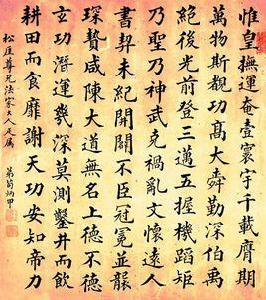 惟皇撫運奄壹寰宇千載膺期
萬物斯覩功高大舜勤深伯禹
絕後光前登三邁五握機蹈矩
乃聖乃神武克禍亂文懷遠人
書契未紀開闢不臣冠冕並襲
琛贄咸陳大道無名上德不德
玄功潛運幾深莫測鑿井而飲
耕田而食靡謝天功安知帝力
松庭尊兄法家大人正屬
弟荀炳甲